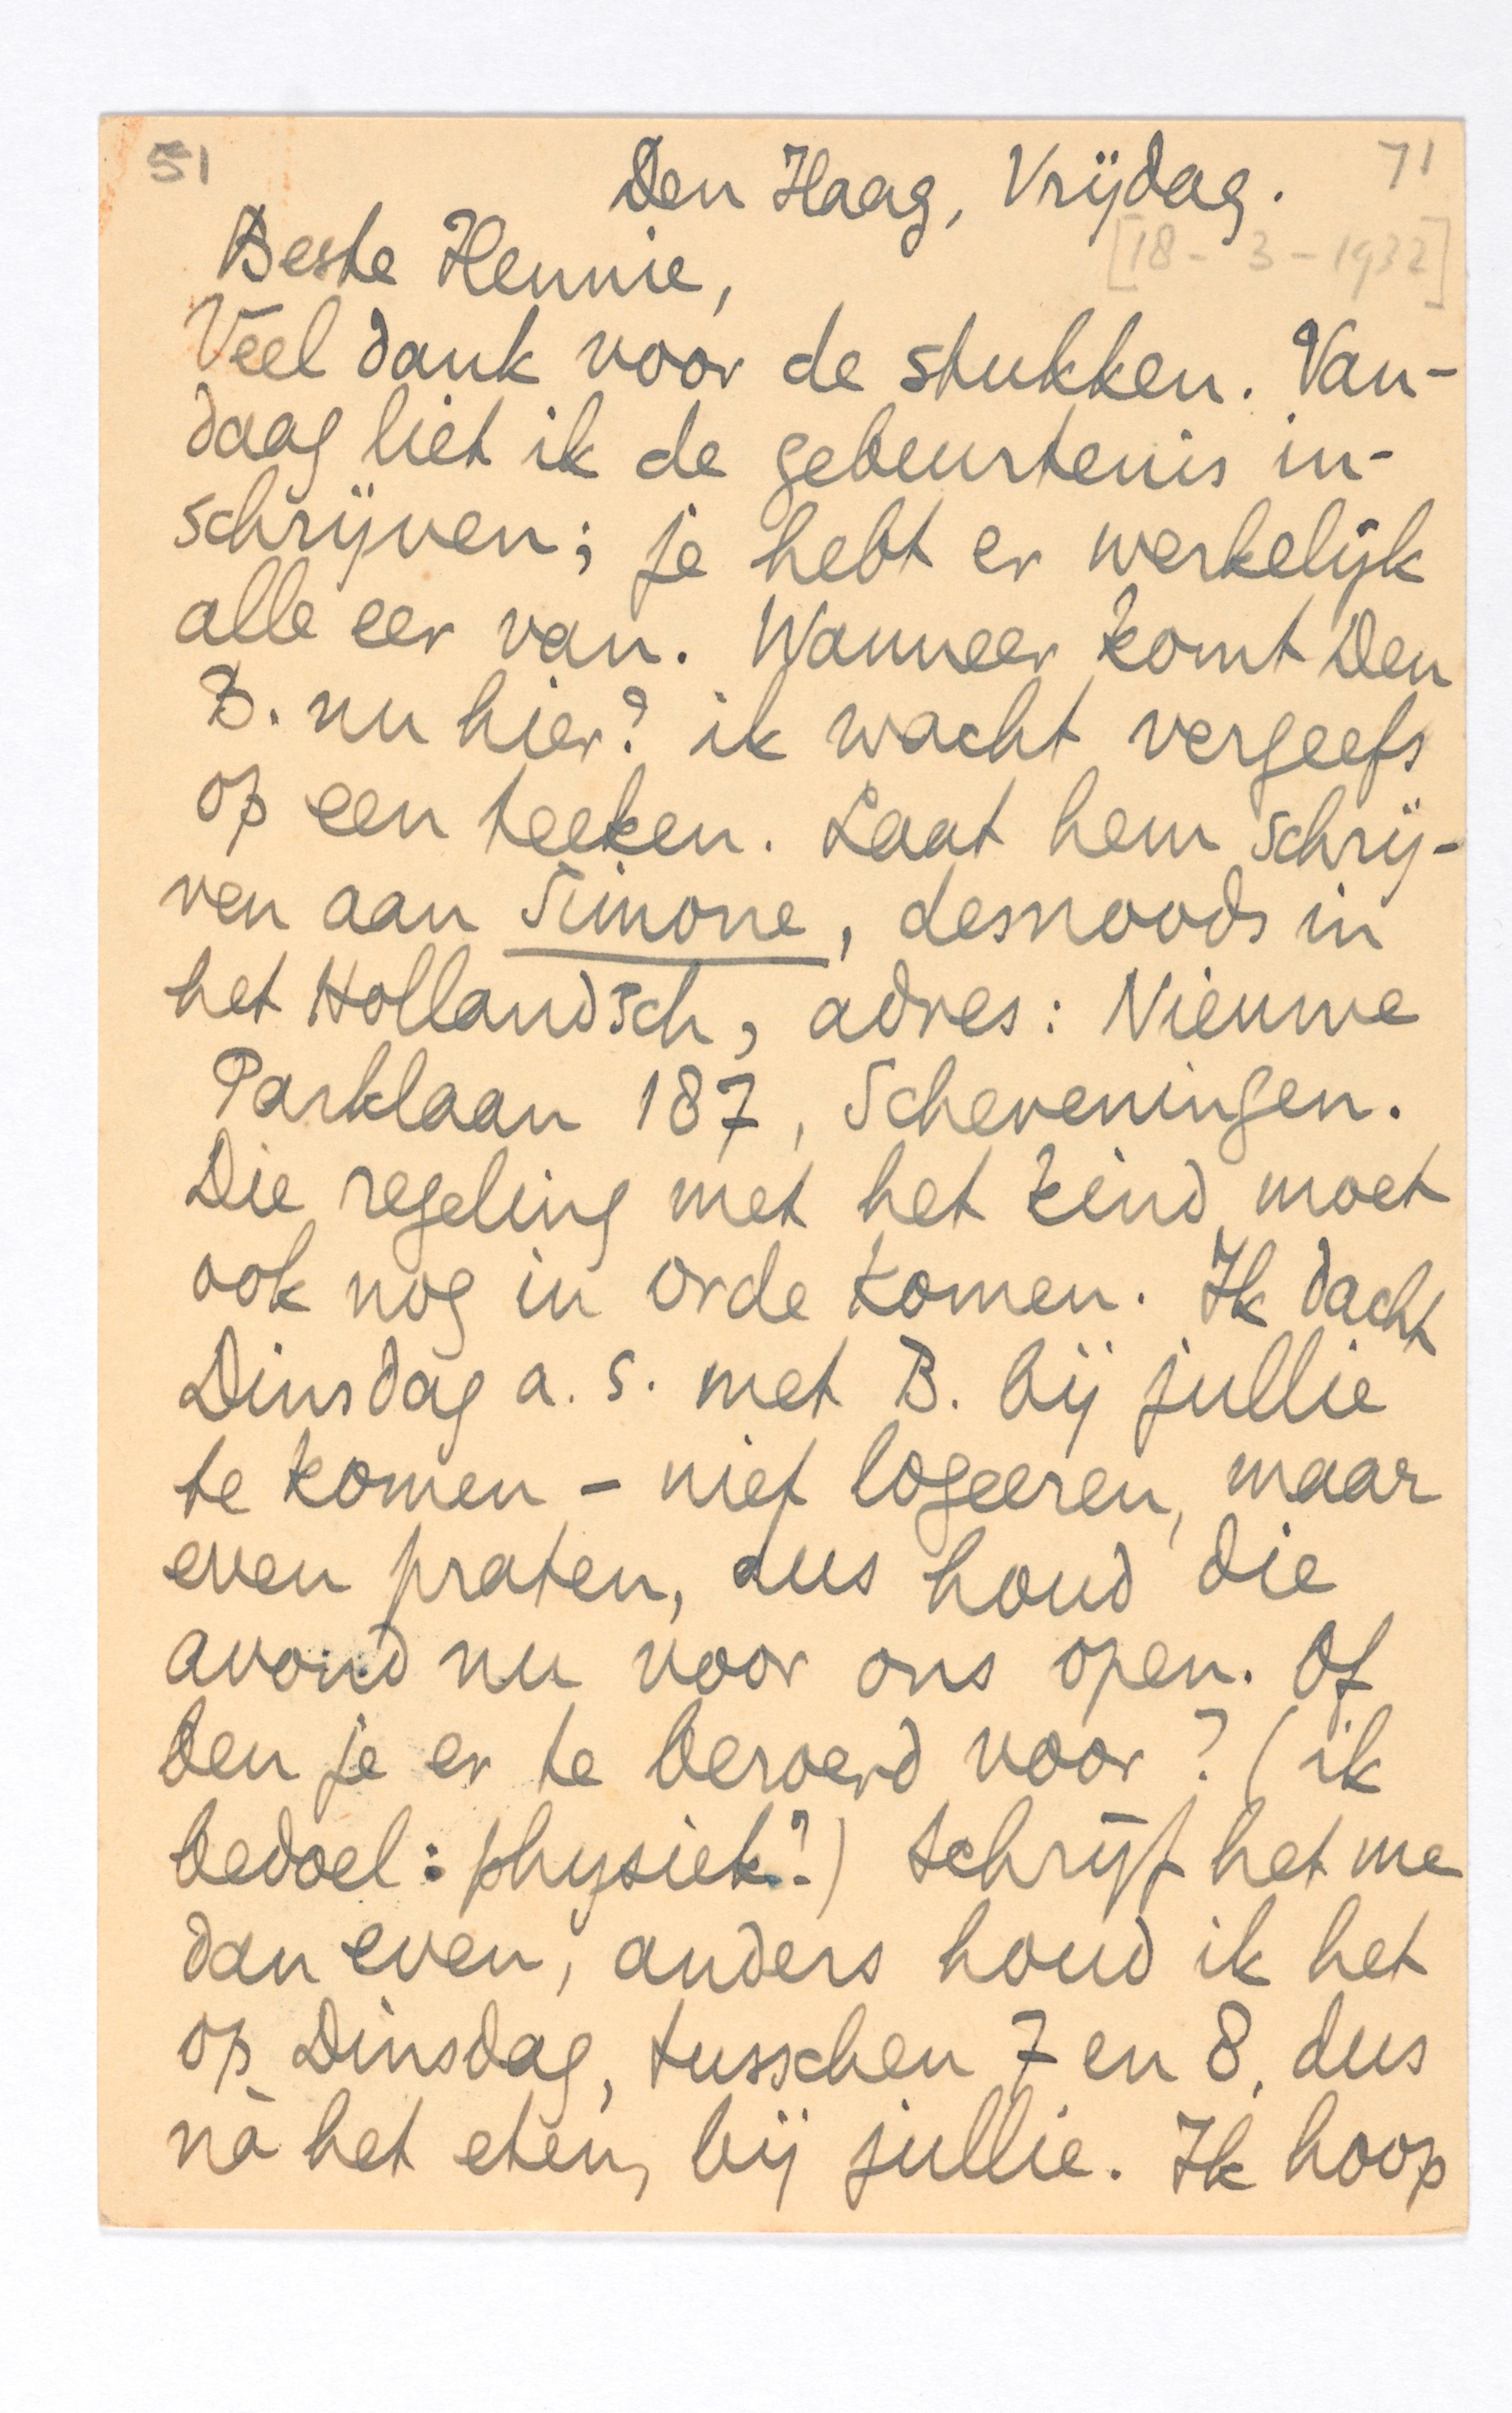 51
Den Haag, Vrijdag.
71
[18-3-1932]
Beste Hennie,
Veel dank voor de stukken. Van-
daag liet ik de gebeurtenis in-
schrijven; je hebt er werkelijk
alle eer van. Wanneer komt Den
B. nu hier? ik wacht vergeefs
op een teeken. Laat hem schrij-
ven aan Simone, desnoods in
het Hollandsch, adres: Nieuwe
Parklaan 187, Scheveningen.
Die regeling met het kind moet
ook nog in orde komen. Ik dacht
Dinsdag a.s. met B. bij jullie
te komen - niet logeeren, maar
even praten, dus houd die
avond nu voor ons open. Of
ben je er te beroerd voor? (ik
bedoel: physiek?) Schrijf het me
dan even, anders houd ik het
op Dinsdag, tusschen 7 en 8, dus
nà het eten, bij jullie. Ik hoop